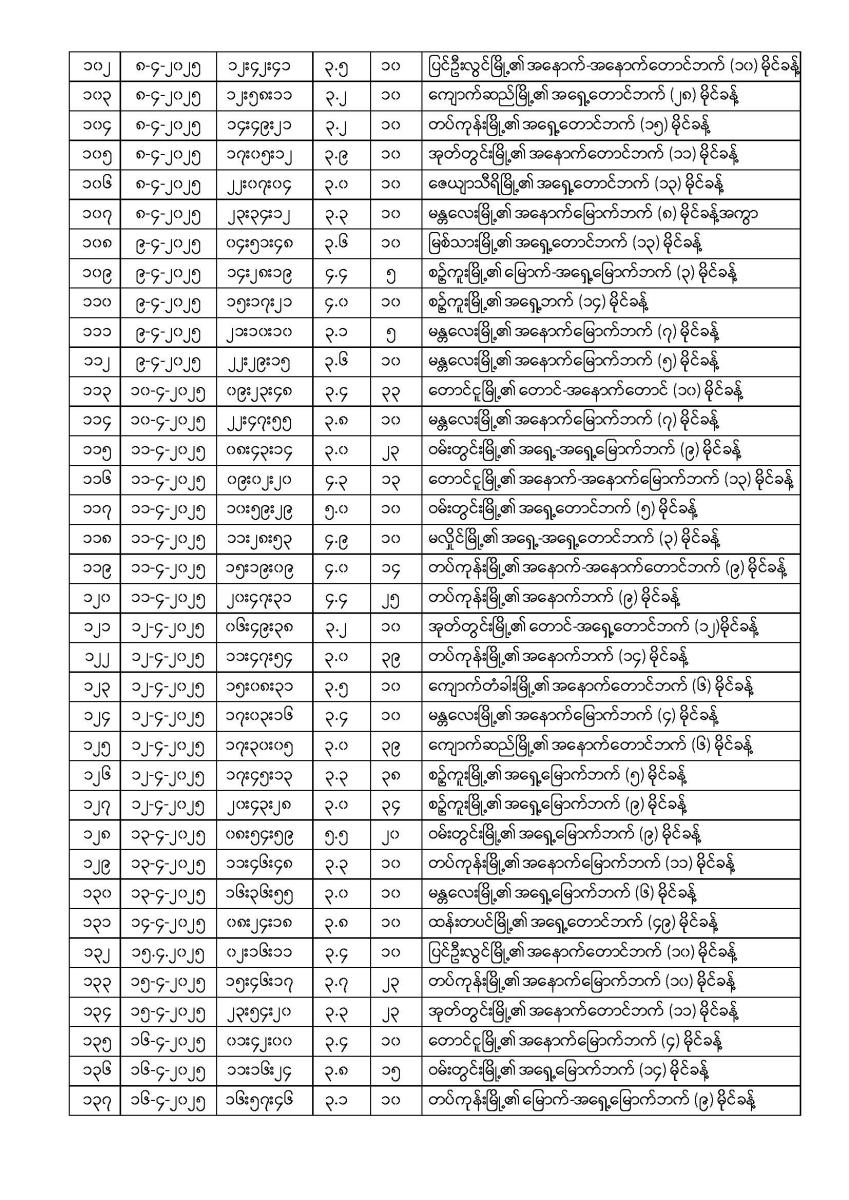 ၁၀၂ ၈-၄-၂၀၂၅ ၁၂း၄၂း၄၁ ၃.၅ ၁၀ ပြင်ဦးလွင်မြို့၏ အနောက်-အနောက်တောင်ဘက် (၁၀) မိုင်ခန့်
၁၀၃ ၈-၄-၂၀၂၅ ၁၂း၅၈း၁၁ ၃.၂ ၁၀ ကျောက်ဆည်မြို့၏ အရှေ့တောင်ဘက် (၂၈) မိုင်ခန့်
၁၀၄ ၈-၄-၂၀၂၅ ၁၄း၄၉း၂၁ ၃.၂ ၁၀ တပ်ကုန်းမြို့၏ အရှေ့တောင်ဘက် (၁၅) မိုင်ခန့်
၁၀၅ ၈-၄-၂၀၂၅ ၁၇း၀၅း၁၂ ၃.၉ ၁၀ အုတ်တွင်းမြို့၏ အနောက်တောင်ဘက် (၁၁) မိုင်ခန့်
၁၀၆ ၈-၄-၂၀၂၅ ၂၂း၀၇း၀၄ ၃.၀ ၁၀ ဇေယျာသီရိမြို့၏ အရှေ့တောင်ဘက် (၁၃) မိုင်ခန့်
၁၀၇ ၈-၄-၂၀၂၅ ၂၃း၃၄း၁၂ ၃.၃ ၁၀ မန္တလေးမြို့၏ အနောက်မြောက်ဘက် (၈) မိုင်ခန့်အကွာ
၁၀၈ ၉-၄-၂၀၂၅ ၀၄း၅၁း၄၈ ၃.၆ ၁၀ မြစ်သားမြို့၏ အရှေ့တောင်ဘက် (၁၃) မိုင်ခန့်
၁၀၉ ၉-၄-၂၀၂၅ ၁၄း၂၈း၁၉ ၄.၄ ၅ စဉ့်ကူးမြို့၏ မြောက်-အရှေ့မြောက်ဘက် (၃) မိုင်ခန့်
၁၁၀ ၉-၄-၂၀၂၅ ၁၅း၁၇း၂၁ ၄.၀ ၁၀ စဉ့်ကူးမြို့၏ အရှေ့ဘက် (၁၄) မိုင်ခန့်
၁၁၁ ၉-၄-၂၀၂၅ ၂၁း၁၀း၁၀ ၃.၁ ၅ မန္တလေးမြို့၏ အနောက်မြောက်ဘက် (၇) မိုင်ခန့်
၁၁၂ ၉-၄-၂၀၂၅ ၂၂း၂၉း၁၅ ၃.၆ ၁၀ မန္တလေးမြို့၏ အနောက်မြောက်ဘက် (၅) မိုင်ခန့်
၁၁၃ ၁၀-၄-၂၀၂၅ ၀၉း၂၃း၄၈ ၃.၄ ၃၃ တောင်ငူမြို့၏ တောင်-အနောက်တောင် (၁၀) မိုင်ခန့်
၁၁၄ ၁၀-၄-၂၀၂၅ ၂၂း၄၇း၅၅ ၃.၈ ၁၀ မန္တလေးမြို့၏ အနောက်မြောက်ဘက် (၇) မိုင်ခန့်
၁၁၅ ၁၁-၄-၂၀၂၅ ၀၈း၄၃း၁၄ ၃.၀ ၂၃ ဝမ်းတွင်းမြို့၏ အရှေ့-အရှေ့မြောက်ဘက် (၉) မိုင်ခန့်
၁၁၆ ၁၁-၄-၂၀၂၅ ၀၉း၀၂း၂၀ ၄.၃ ၁၃ တောင်ငူမြို့၏ အနောက်-အနောက်မြောက်ဘက် (၁၃) မိုင်ခန့်
၁၁၇ ၁၁-၄-၂၀၂၅ ၁၀း၅၉း၂၉ ၅.၀ ၁၀ ဝမ်းတွင်းမြို့၏ အရှေ့တောင်ဘက် (၅) မိုင်ခန့်
၁၁၈ ၁၁-၄-၂၀၂၅ ၁၁း၂၈း၅၃ ၄.၉ ၁၀ မလှိုင်မြို့၏ အရှေ့-အရှေ့တောင်ဘက် (၃) မိုင်ခန့်
၁၁၉ ၁၁-၄-၂၀၂၅ ၁၅း၁၉း၀၉ ၄.၀ ၁၄ တပ်ကုန်းမြို့၏ အနောက်-အနောက်တောင်ဘက် (၉) မိုင်ခန့်
၁၂၀ ၁၁-၄-၂၀၂၅ ၂၀း၄၇း၃၁ ၄.၄ ၂၅ တပ်ကုန်းမြို့၏ အနောက်ဘက် (၉) မိုင်ခန့်
၁၂၁ ၁၂-၄-၂၀၂၅ ၀၆း၄၉း၃၈ ၃.၂ ၁၀ အုတ်တွင်းမြို့၏ တောင်-အရှေ့တောင်ဘက် (၁၂)မိုင်ခန့်
၁၂၂ ၁၂-၄-၂၀၂၅ ၁၁း၄၇း၅၄ ၃.၀ ၃၉ တပ်ကုန်းမြို့၏ အနောက်ဘက် (၁၄) မိုင်ခန့်
၁၂၃ ၁၂-၄-၂၀၂၅ ၁၅း၀၈း၃၁ ၃.၅ ၁၀ ကျောက်တံခါးမြို့၏ အနောက်တောင်ဘက် (၆) မိုင်ခန့်
၁၂၄ ၁၂-၄-၂၀၂၅ ၁၇း၀၃း၁၆ ၃.၄ ၁၀ မန္တလေးမြို့၏ အနောက်မြောက်ဘက် (၄) မိုင်ခန့်
၁၂၅ ၁၂-၄-၂၀၂၅ ၁၇း၃၀း၀၅ ၃.၀ ၃၉ ကျောက်ဆည်မြို့၏ အနောက်တောင်ဘက် (၆) မိုင်ခန့်
၁၂၆ ၁၂-၄-၂၀၂၅ ၁၇း၄၅း၁၃ ၃.၃ ၃၈ စဉ့်ကူးမြို့၏ အရှေ့မြောက်ဘက် (၅) မိုင်ခန့်
၁၂၇ ၁၂-၄-၂၀၂၅ ၂၀း၄၃း၂၈ ၃.၀ ၃၄ စဉ့်ကူးမြို့၏ အရှေ့မြောက်ဘက် (၉) မိုင်ခန့်
၁၂၈ ၁၃-၄-၂၀၂၅ ၀၈း၅၄း၅၉ ၅.၅ ၂၀ ဝမ်းတွင်းမြို့၏ အရှေ့မြောက်ဘက် (၉) မိုင်ခန့်
၁၂၉ ၁၃-၄-၂၀၂၅ ၁၁း၄၆း၄၈ ၃.၃ ၁၀ တပ်ကုန်းမြို့၏ အနောက်မြောက်ဘက် (၁၁) မိုင်ခန့်
၁၃၀ ၁၃-၄-၂၀၂၅ ၁၆း၃၆း၅၅ ၃.၀ ၁၀ မန္တလေးမြို့၏ အရှေ့မြောက်ဘက် (၆) မိုင်ခန့်
၁၃၁ ၁၄-၄-၂၀၂၅ ၀၈း၂၄း၁၈ ၃.၈ ၁၀ ထန်းတပင်မြို့၏ အရှေ့တောင်ဘက် (၄၉) မိုင်ခန့်
၁၃၂ ၁၅.၄.၂၀၂၅ ၀၂း၁၆း၁၁ ၃.၄ ၁၀ ပြင်ဦးလွင်မြို့၏ အနောက်တောင်ဘက် (၁၀) မိုင်ခန့်
၁၃၃ ၁၅-၄-၂၀၂၅ ၁၅း၄၆း၁၇ ၃.၇ ၂၃ တပ်ကုန်းမြို့၏ အနောက်မြောက်ဘက် (၁၀) မိုင်ခန့်
၁၃၄ ၁၅-၄-၂၀၂၅ ၂၃း၅၄း၂၀ ၃.၃ ၂၃ အုတ်တွင်းမြို့၏ အနောက်တောင်ဘက် (၁၁) မိုင်ခန့်
၁၃၅ ၁၆-၄-၂၀၂၅ ၀၁း၄၂း၀၀ ၃.၄ ၁၀ တောင်ငူမြို့၏ အနောက်မြောက်ဘက် (၄) မိုင်ခန့်
၁၃၆ ၁၆-၄-၂၀၂၅ ၁၁း၁၆း၂၄ ၃.၈ ၁၅ ဝမ်းတွင်းမြို့၏ အရှေ့မြောက်ဘက် (၁၄) မိုင်ခန့်
၁၃၇ ၁၆-၄-၂၀၂၅ ၁၆း၅၇း၄၆ ၃.၁ ၁၀ တပ်ကုန်းမြို့၏ မြောက်-အရှေ့မြောက်ဘက် (၉) မိုင်ခန့်